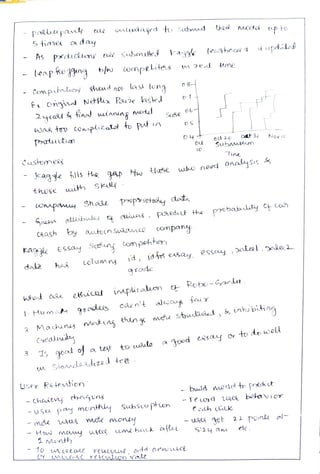 - participants are encouraged to submit their model up to
5 times a day
- As predictions are submitted kaggle leaderboard is updated
- leapfrogging b/w competitors in real time
- Competitions should not last long
Ex Original Netflix Prize lasted
2 years & final winning model
was too complicated to put in
production
0.8
0.7
Score 0.6
0.5
0.4
Submission
Time
Customers
- kaggle fills the gap b/w those who need analysis &
those with skills.
- companies share proprietary data
- Given attributes of drivers, predict the probability of car
crash by auto insurance company
Kaggle essay scoring competition
data had columns id, essay, essay, 
grade
What are ethical implication of Robo-Grader
1. Human graders aren't always fair
2 Machines making things more structured, & inhibiting
creativity
3 Is goal of a test to write a good essay or to do well
in standardized test
User Retention
- charity
- user pay monthly subscription
- more users more money
- How many users come back after
1 month
- To increase revenue, add
or increase retention rate
- build model to predict
- record user behavior
each click
- user got 22 points at